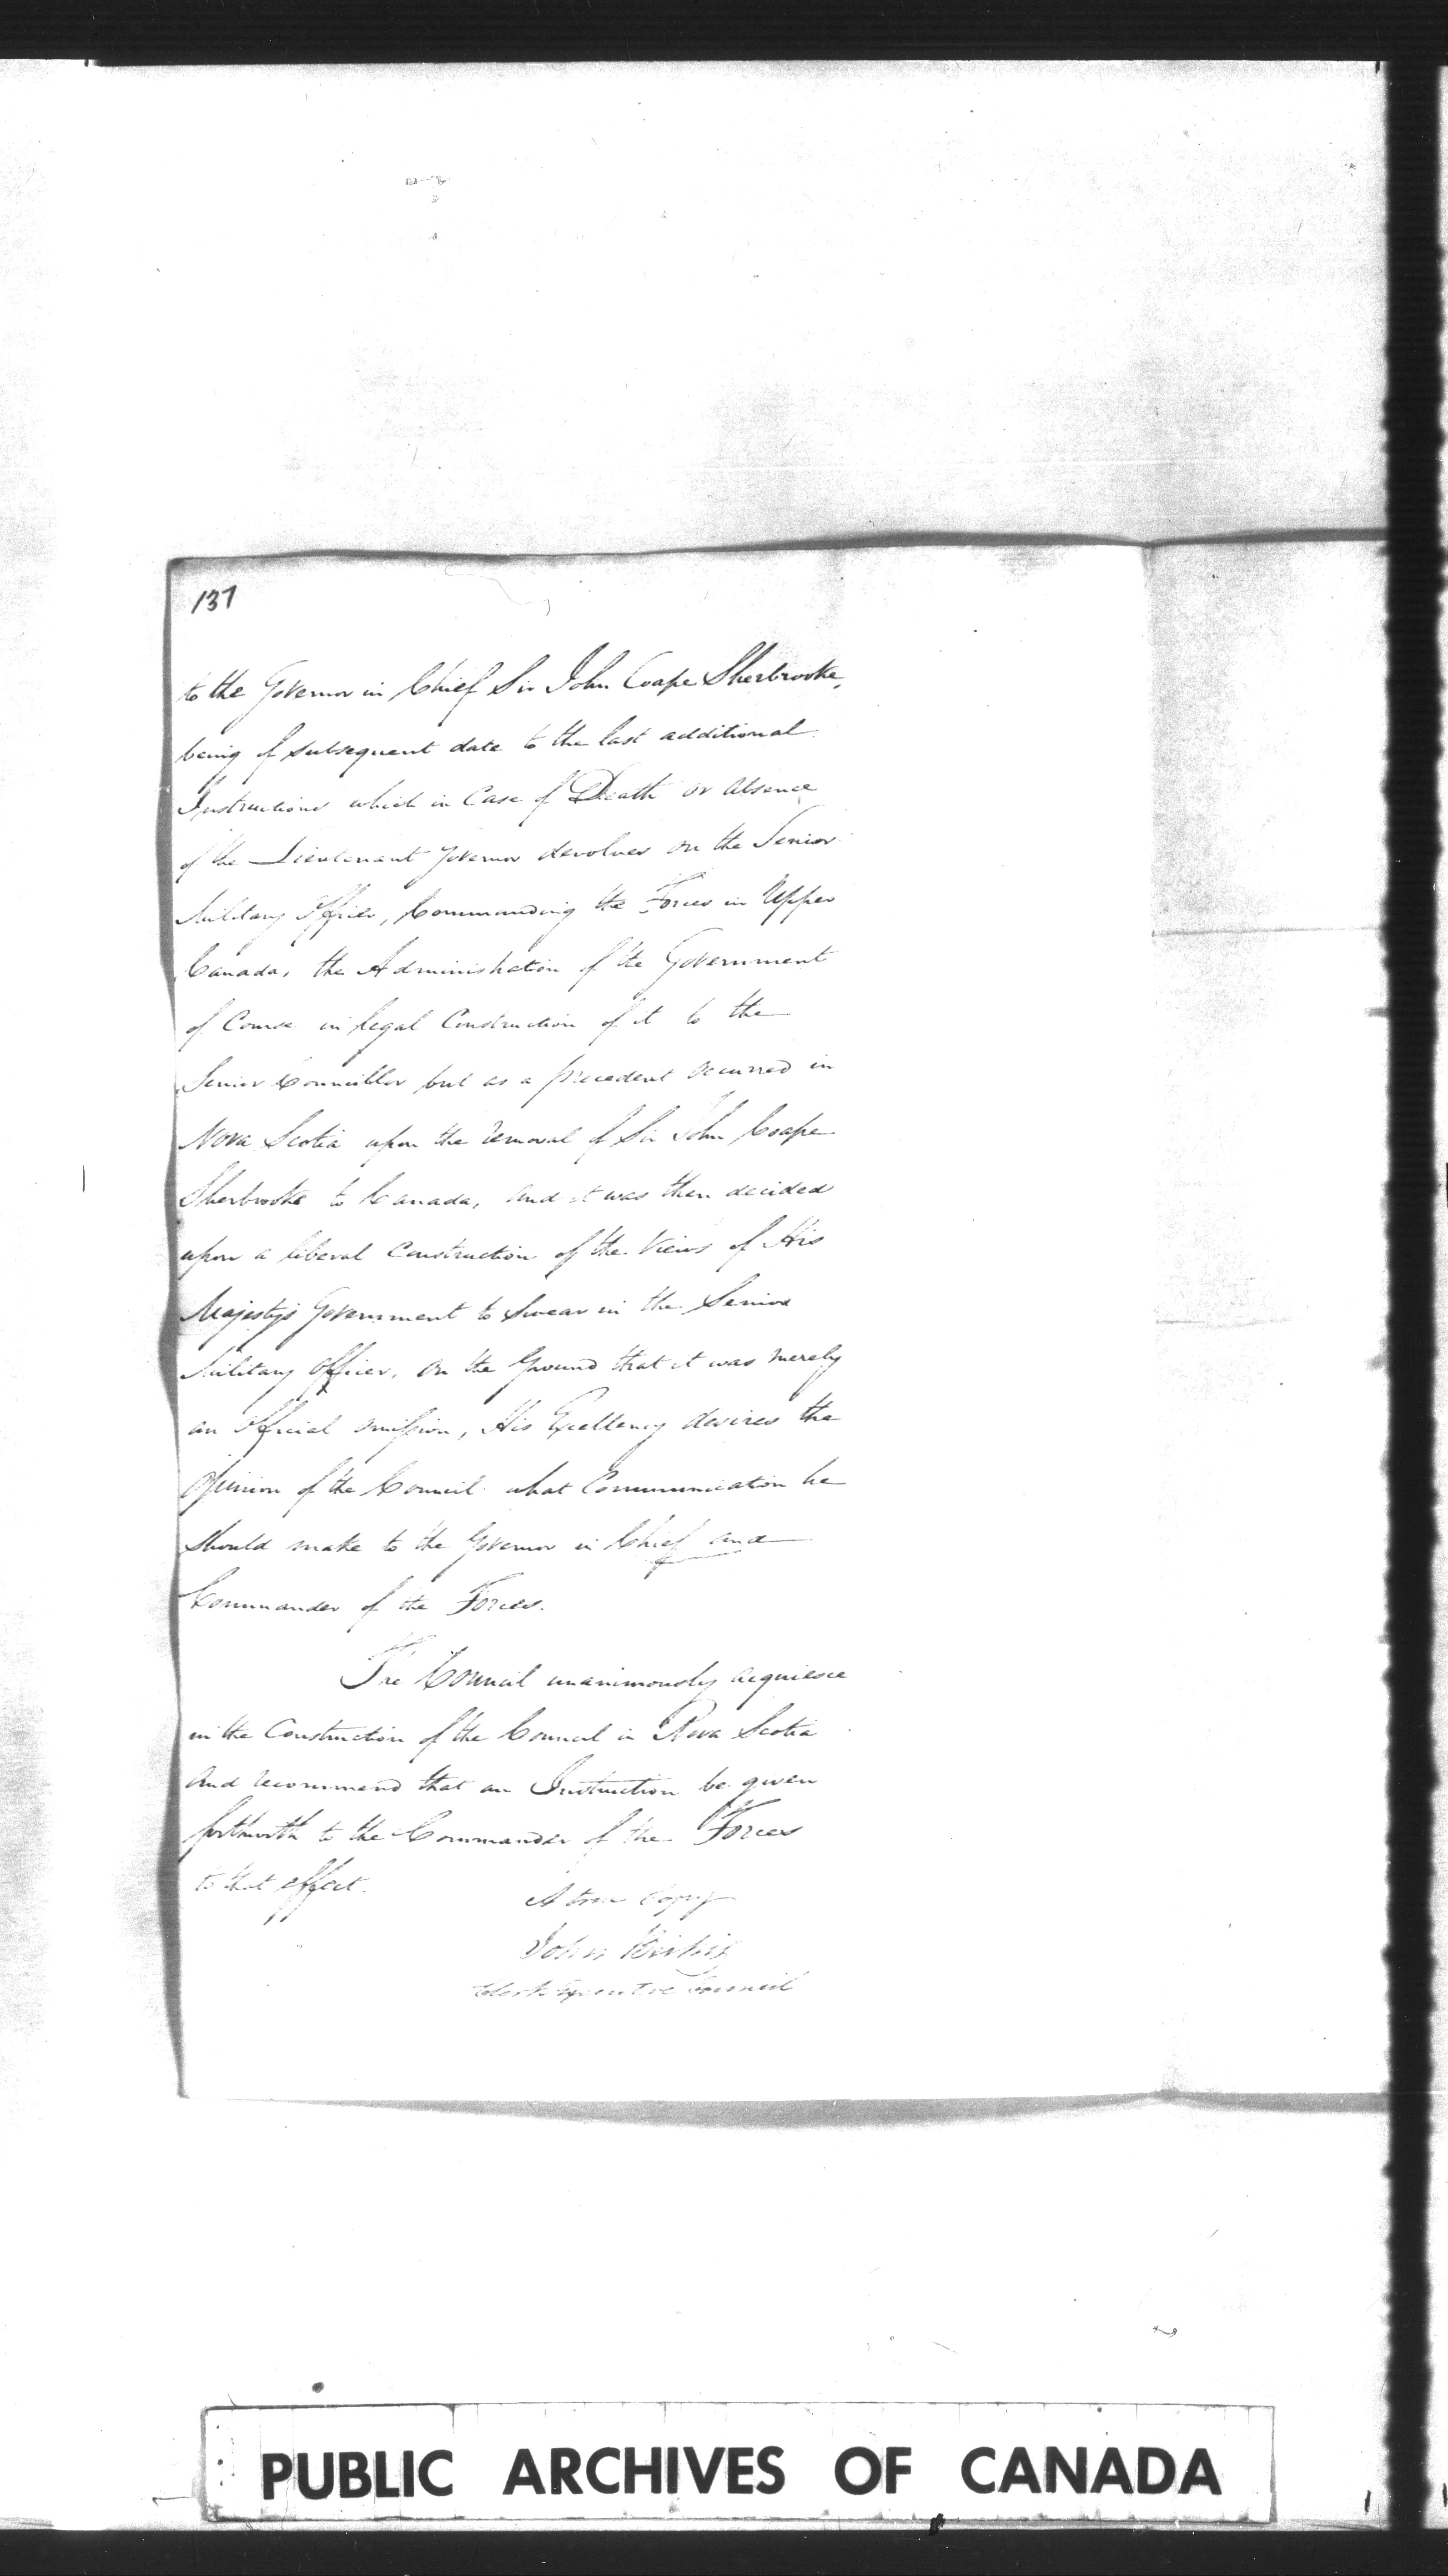 137
to the Governor in Chief Sir John Coape Sherbrooke,
being of subsequent date to the last additional
Instructions which in Case of Death or absence
of the Lieutenant Governor devolves on the Senior
Military Officer, Commanding the Forces in Upper
Canada, the Administration of the Government
of Course in legal Construction of it to the
Senior Councillor but as a precedent occurred in
Nova Scotia upon the removal of Sir John Coape
Sherbrooke to Canada, and it was then decided
upon a liberal Construction of the Views of His
Majesty's Government to Swear in the Senior
Military Officer, on the Ground that it was merely
an Official omission, His Excellency desires the
Opinion of the Council what Communication he
should make to the Governor in Chief and
Commander of the Forces.
The Council unanimously acquiesce
in the Construction of the Council in Nova Scotia
and recommend that an Instruction be given
forthwith to the Commander of the Forces
to that effect.
A true Copy
John
Clerk Executive Council
PUBLIC ARCHIVES OF CANADA